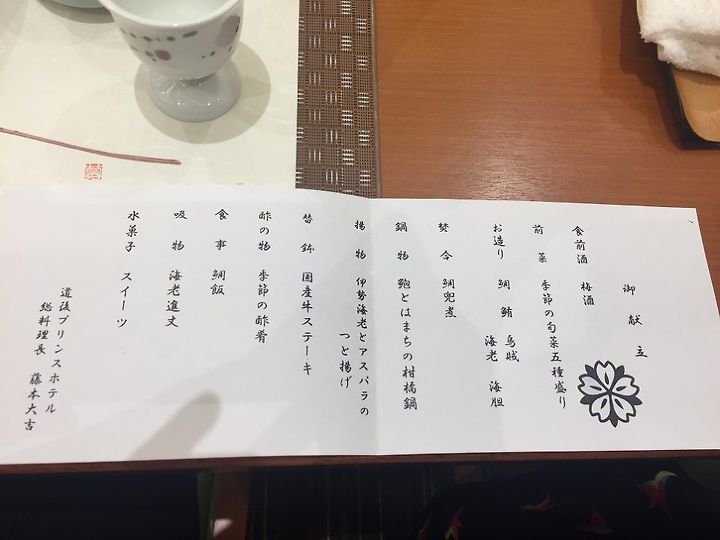 御献立
食前酒 梅酒
前菜 季節の旬菜五種盛り
お造り 鯛 鮪 烏賊 海胆
海老
焚合 鯛兜煮
鍋物 鮑とはまちの柑橘鍋
揚物 伊勢海老とアスパラの
つと揚げ
替鉢 国産牛ステーキ
酢の物 季節の酢肴
食事 鯛飯
吸物 海老進丈
水菓子 スイーツ
道後プリンスホテル
総料理長 藤本大吉